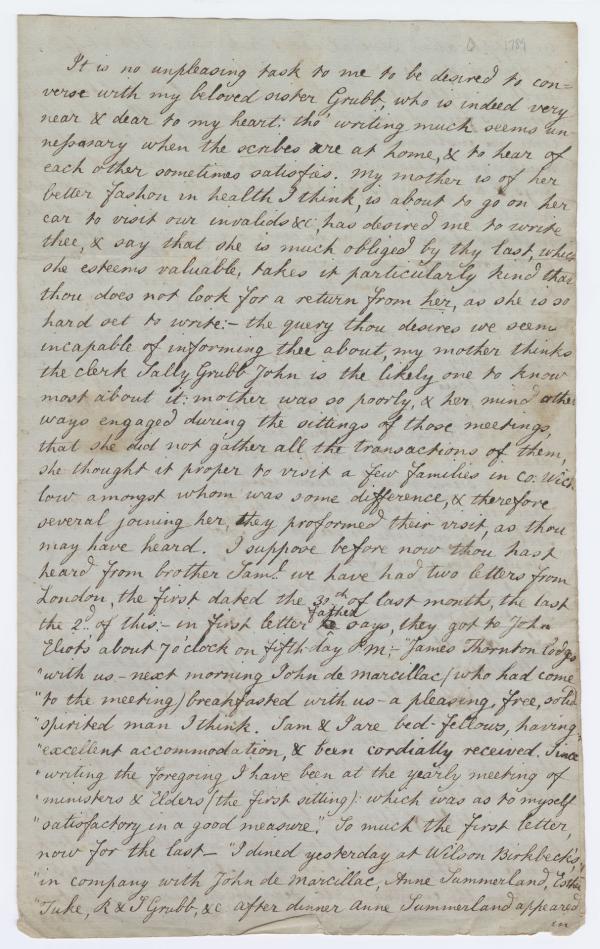 1789
It is no unpleasing task to me to be desired to con=
verse with my beloved sister Grubb, who is indeed very
near & dear to my heart: tho' writing much seems un-
nessasary when the scribes are at home, & to hear of
each other sometimes satisfies. My mother is of her
better fashon in health I think, is about to go on her
car to visit our invalids &c, has desired me to write
thee, & say that she is much obliged by thy last, which
she esteems valuable, takes it particularly kind that
thou does not look for a return from her, as she is so
hard set to write:- the query thou desires we seem
incapable of informing thee about, my mother thinks
the clerk Sally Grubb John is the likely one to know
most about it: mother was so poorly, & her mind other
ways engaged during the sittings of those meetings,
that she did not gather all the transactions of them,
she thought it proper to visit a few families in Co: Wick
low amongst whom was some difference, & therefore
several joining her, they proformed their visit, as thou
may have heard. I suppose before now thou hast
heard from brother Saml. we have had two letters from
London, the first dated the 30th of last month, the last
the 2d. of this:- in first letter father says, they got to John
Eliot's about 7 o'clock on fifth-day P.M:- "James Thornton lodges
"with us - next morning John de Marcillac (who had come
"to the meeting) breakfasted with us - a pleasing, free, solid
"spirited man I think. Sam & I are bed-fellows, having
"excellent accommodation, & been cordially received. Since
"writing the foregoing I have been at the yearly meeting of
"ministers & Elders (the first sitting): which was as to myself
"satisfactory in a good measure". So much the first letter,
now for the last - "I dined yesterday at Wilson Birkbeck's,
"in company with John de Marcillac, Anne Summerland, Esther
"Tuke, R & S Grubb, &c. after dinner Anne Summerland appeared
in